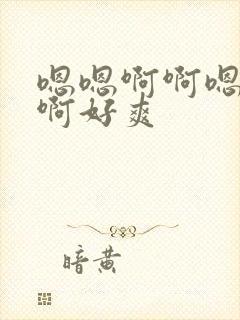 嗯嗯啊啊嗯
啊好爽
暗黄